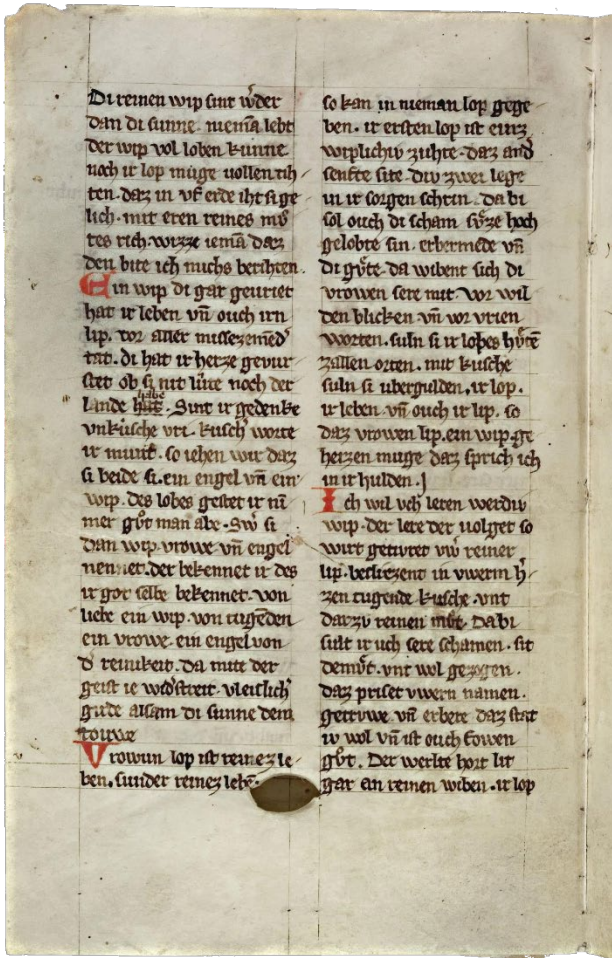 Di reinen wip sint w̓der
dan di sunne. niemā lebt
der wip vol loben kunne
noch ir lop muge vollen tih
ten. daz in vf erde iht si ge
lich. mit eren reines mů
tes rich. wizze iemā daz
den bite ich michs berihten.
Ein wip di gar geuriet
hat ir leben vn̄ ouch irn
lip. vor aller missezemed̓
tat. di hat ir herze gevur
stet ob si nit lute noch der
lande habe hat. Sint ir gedenke
vnkusche vri. kusch̓ worte
ir munt. so iehen wir daz
si beide si. ein engel vn̄ ein
wip. des lobes gestet ir nī
mer gůt man abe. Sw̓ si
dan wip. vrowe vn̄ engel
nennet. der bekennet ir des
ir got selbe bekennet. von
liebe ein wip. von tugēden
ein vrowe. ein engel von
d̓ reinikeit. da mite der
geist ie wid̓streit. vleitlich̓
gude alsam di sunne dem
touwe
Vrowun lop ist reinez le
ben. sunder reinez lebē.
so kan in nieman lop gege
ben. ir ersten lop ist einz
wiplichiv zuhte. daz and̓
senfte site. div zwei lege
in ir sorgen schrin. da bi
sol ouch di scham sůze hoch
gelobte sin. erbermede vn̄
di gůte. da wibent sich di
vrowen sere mit. vor wil
den blicken vn̄ vor vrien
worten. suln si ir lopes hůtē
zallen orten. mit kusche
suln si ubergulden. ir lop.
ir leben vn̄ ouch ir lip. so
daz vrowen lip. ein wip. ge
herzen muge daz sprich ich
in ir hulden.
Ich wil vch leren werdiv
wip. der lere der volget so
wirt getivret vw̓ reiner
lip. besliezent in vwerm h̓
zen tugende kusche. vnt
darzv reinen můt. Da bi
sult ir uch sere schamen. sit
demůt. vnt wol gezogen.
daz priset vwern namen.
getruwe vn̄ erbere daz stat
iv wol vn̄ ist ouch frowen
gůt. Der werlte hort lit
gar an reinen wiben. ir lop